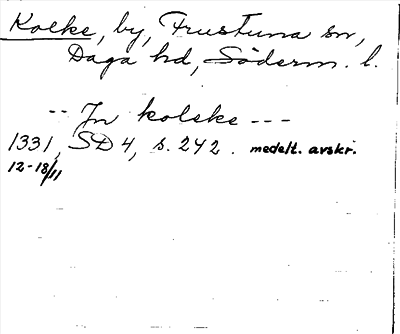 Kolke, by, Frustuna sn,
Daga hd, Söderm. l.
-- Jn kolske ---
1331, SD 4, s. 242. medelt. avskr.
12-18/11